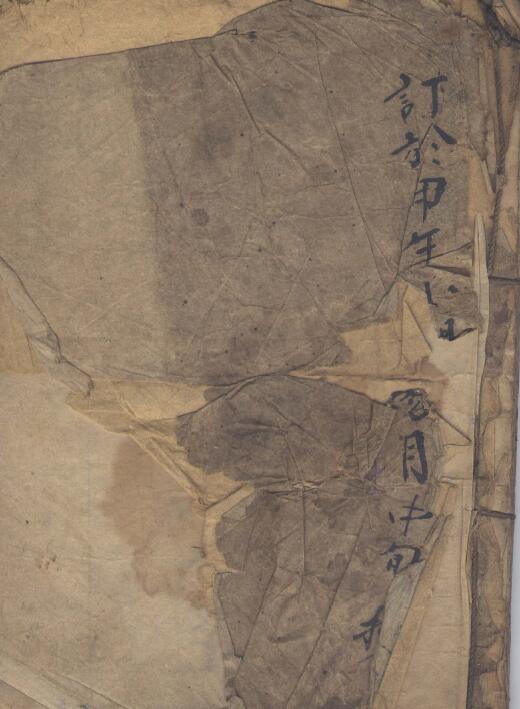 訂於甲年
月中旬